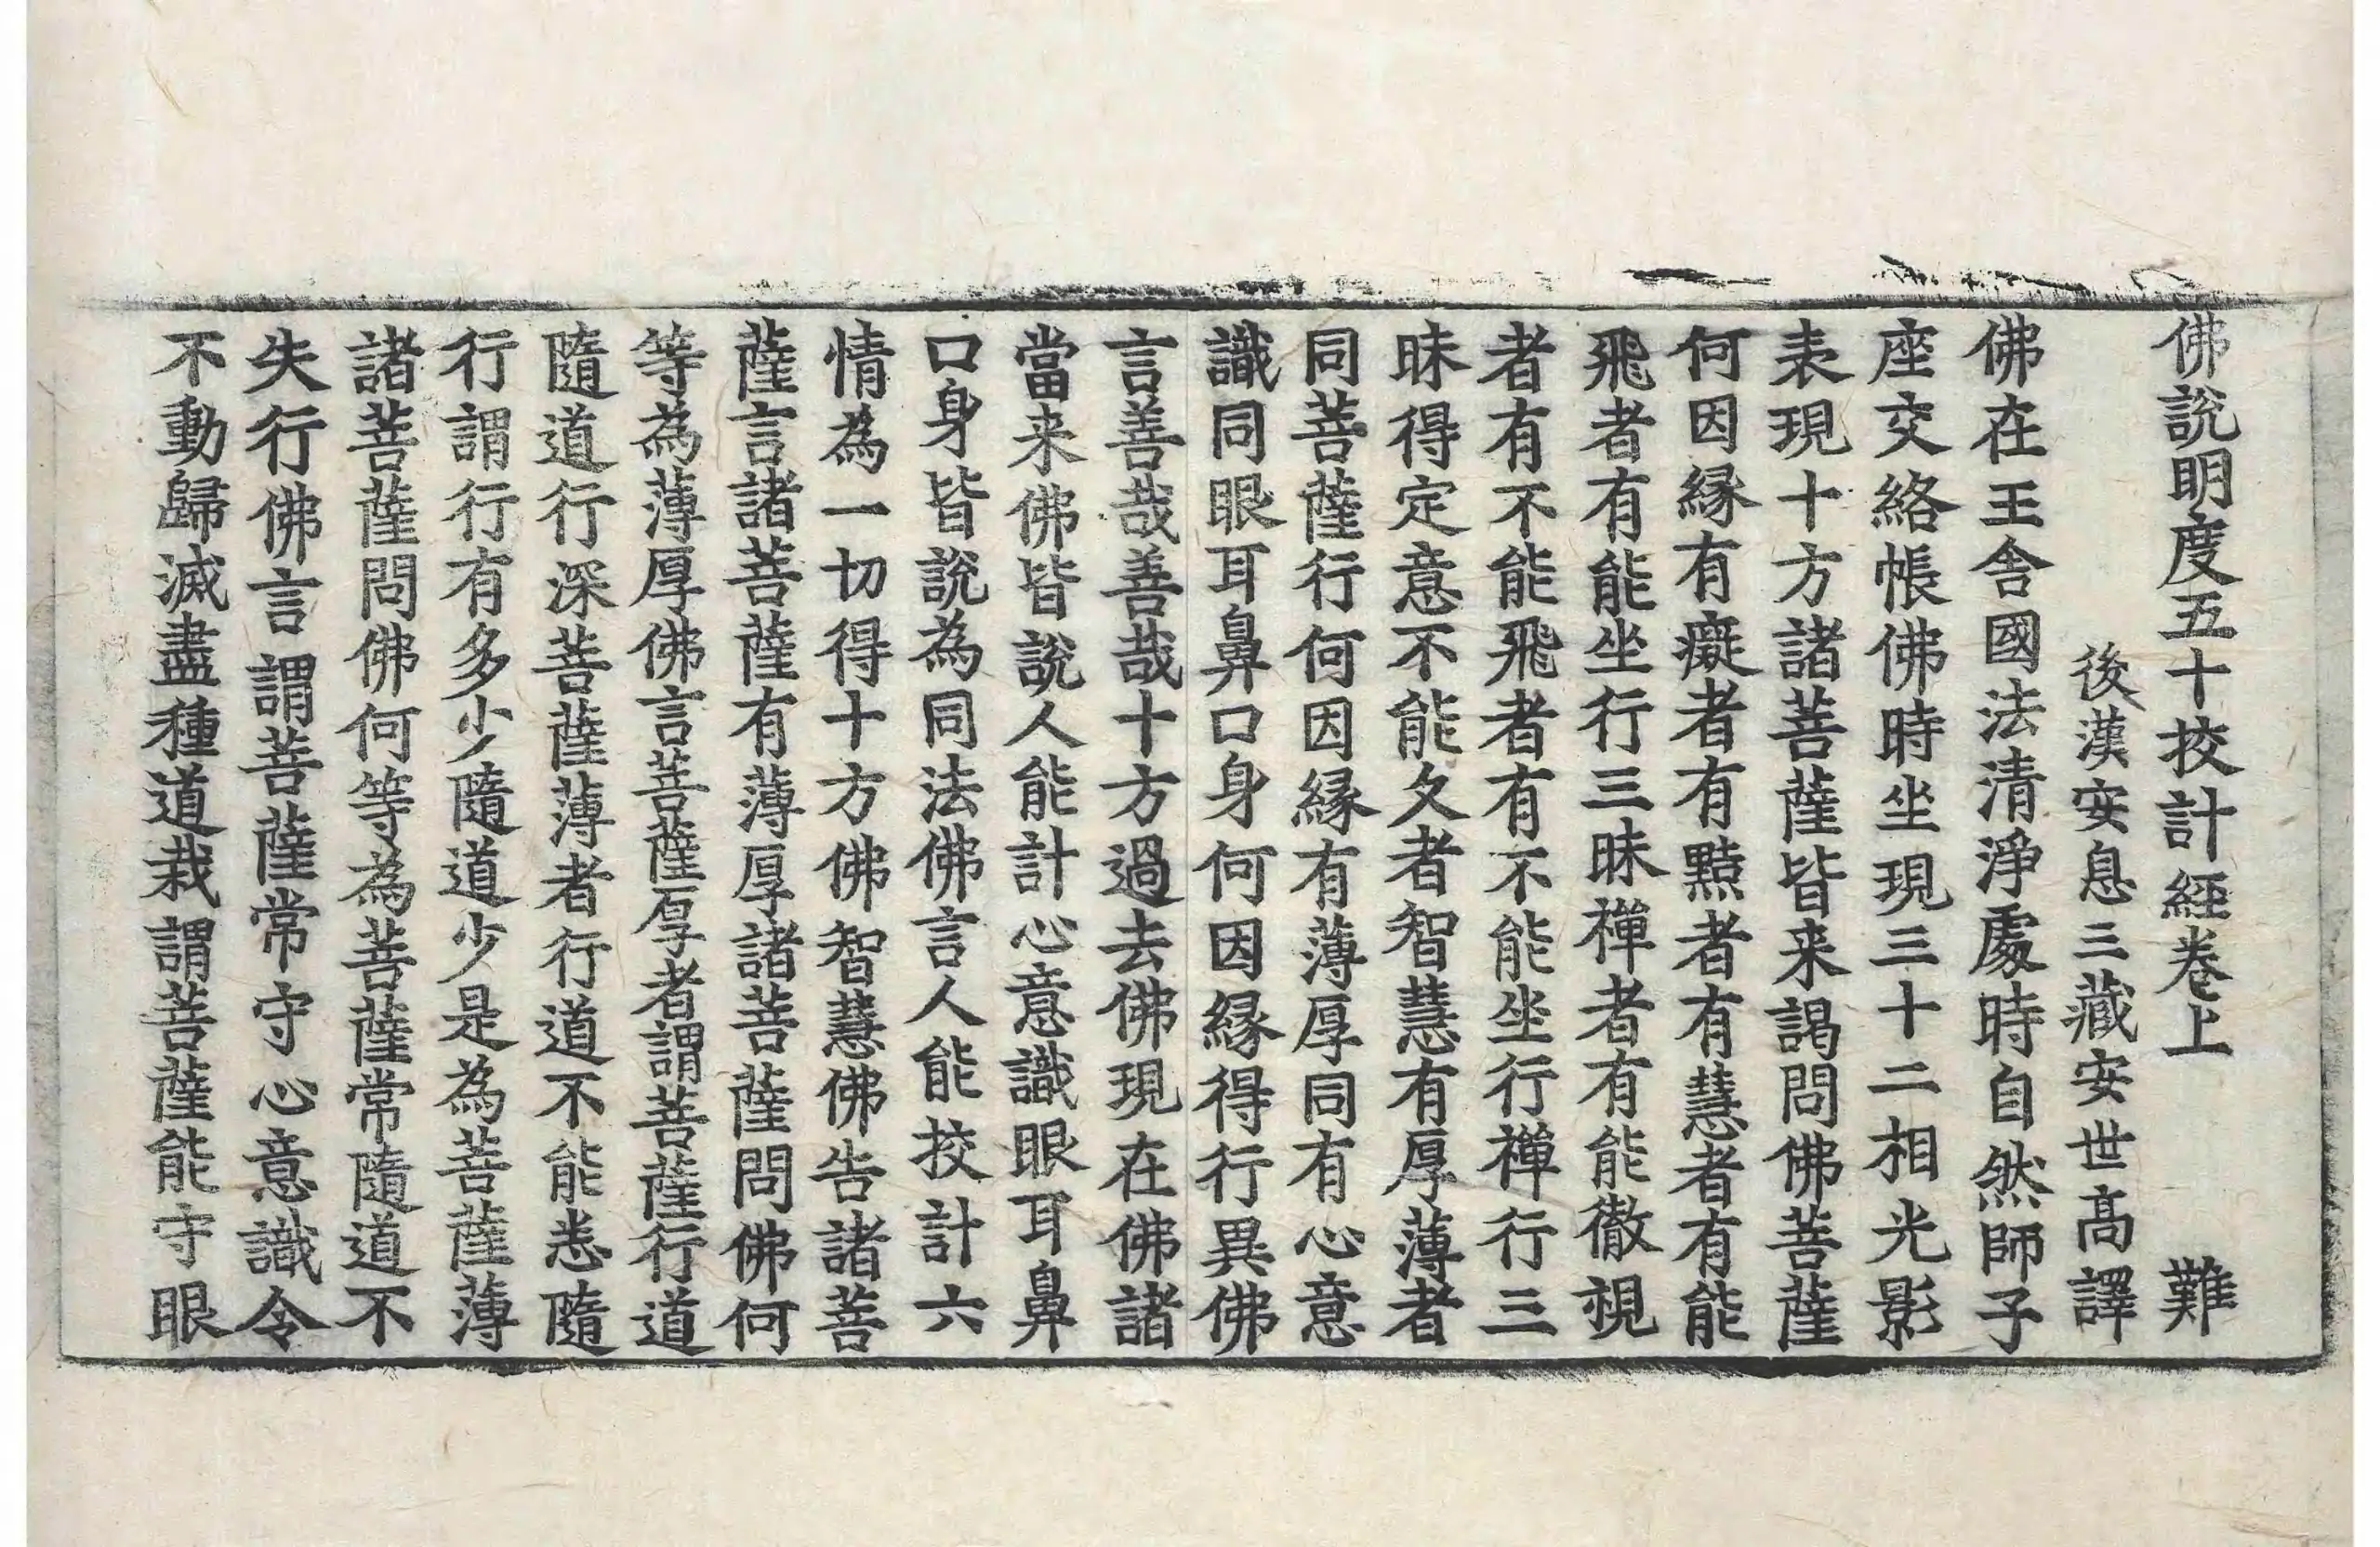 佛說明度五十挍計經卷上　難
後漢安息三藏安世高譯
佛在王舍國法清淨處時自然師子
座交絡帳佛時坐現三十二相光影
表現十方諸菩薩皆来謁問佛菩薩
何因縁有癡者有黠者有慧者有能
飛者有能坐行三昧禪者有能徹視
者有不能飛者有不能坐行禪行三
昧得定意不能久者智慧有厚薄者
同菩薩行何因縁有薄厚同有心意
識同眼耳鼻口身何因縁得行異佛
言善哉善哉十方過去佛現在佛諸
當来佛皆說人能計心意識眼耳鼻
口身皆說為同法佛言人能挍計六
情為一切得十方佛智慧佛告諸菩
薩言諸菩薩有薄厚諸菩薩問佛何
等為薄厚佛言菩薩厚者謂菩薩行道
隨道行深菩薩薄者行道不能悉隨
行謂行有多少隨道少是為菩薩薄
諸菩薩問佛何等為菩薩常隨道不
失行佛言謂菩薩常守心意識令
不動歸滅盡種道栽謂菩薩能守眼